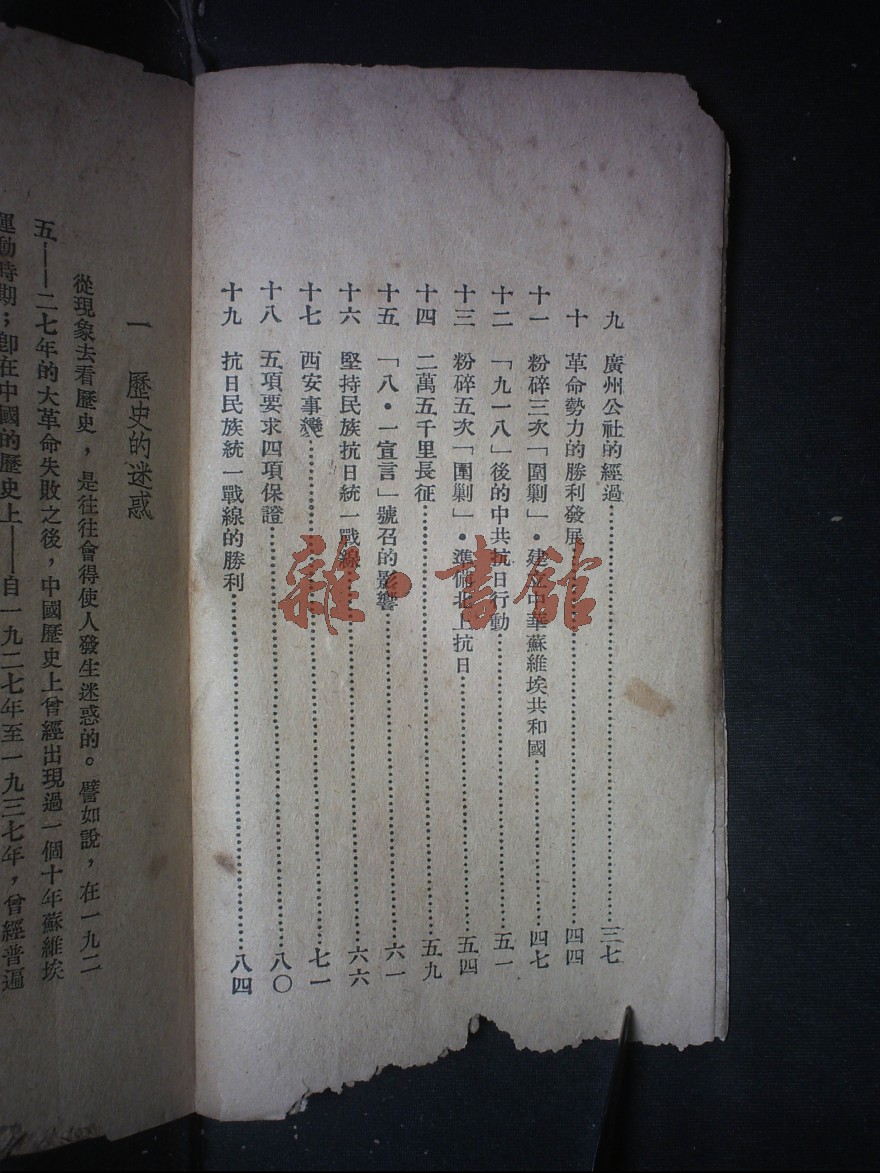 九　廣州公社的經過……三七
十　革命勢力的勝利發展……四四
十一　粉碎三次「圍剿」・建立中華蘇維埃共和國……四七
十二　「九一八」後的中共抗日行動……五一
十三　粉碎五次「圍剿」・準備北上抗日……五四
十四　二萬五千里長征……五九
十五　「八・一宣言」號召的影響……六一
十六　堅持民族抗日統一戰線……六六
十七　西安事變……七一
十八　五項要求四項保證……八〇
十九　抗日民族統一戰線的勝利……八四
雜・書館
一　歷史的迷惑
從現象去看歷史，是往往會得使人發生迷惑的。譬如說，在一九二
五——二七年的大革命失敗之後，中國歷史上曾經出現過一個十年蘇維埃
運動時期；卽在中國的歷史上——自一九二七年至一九三七年，曾經普遍